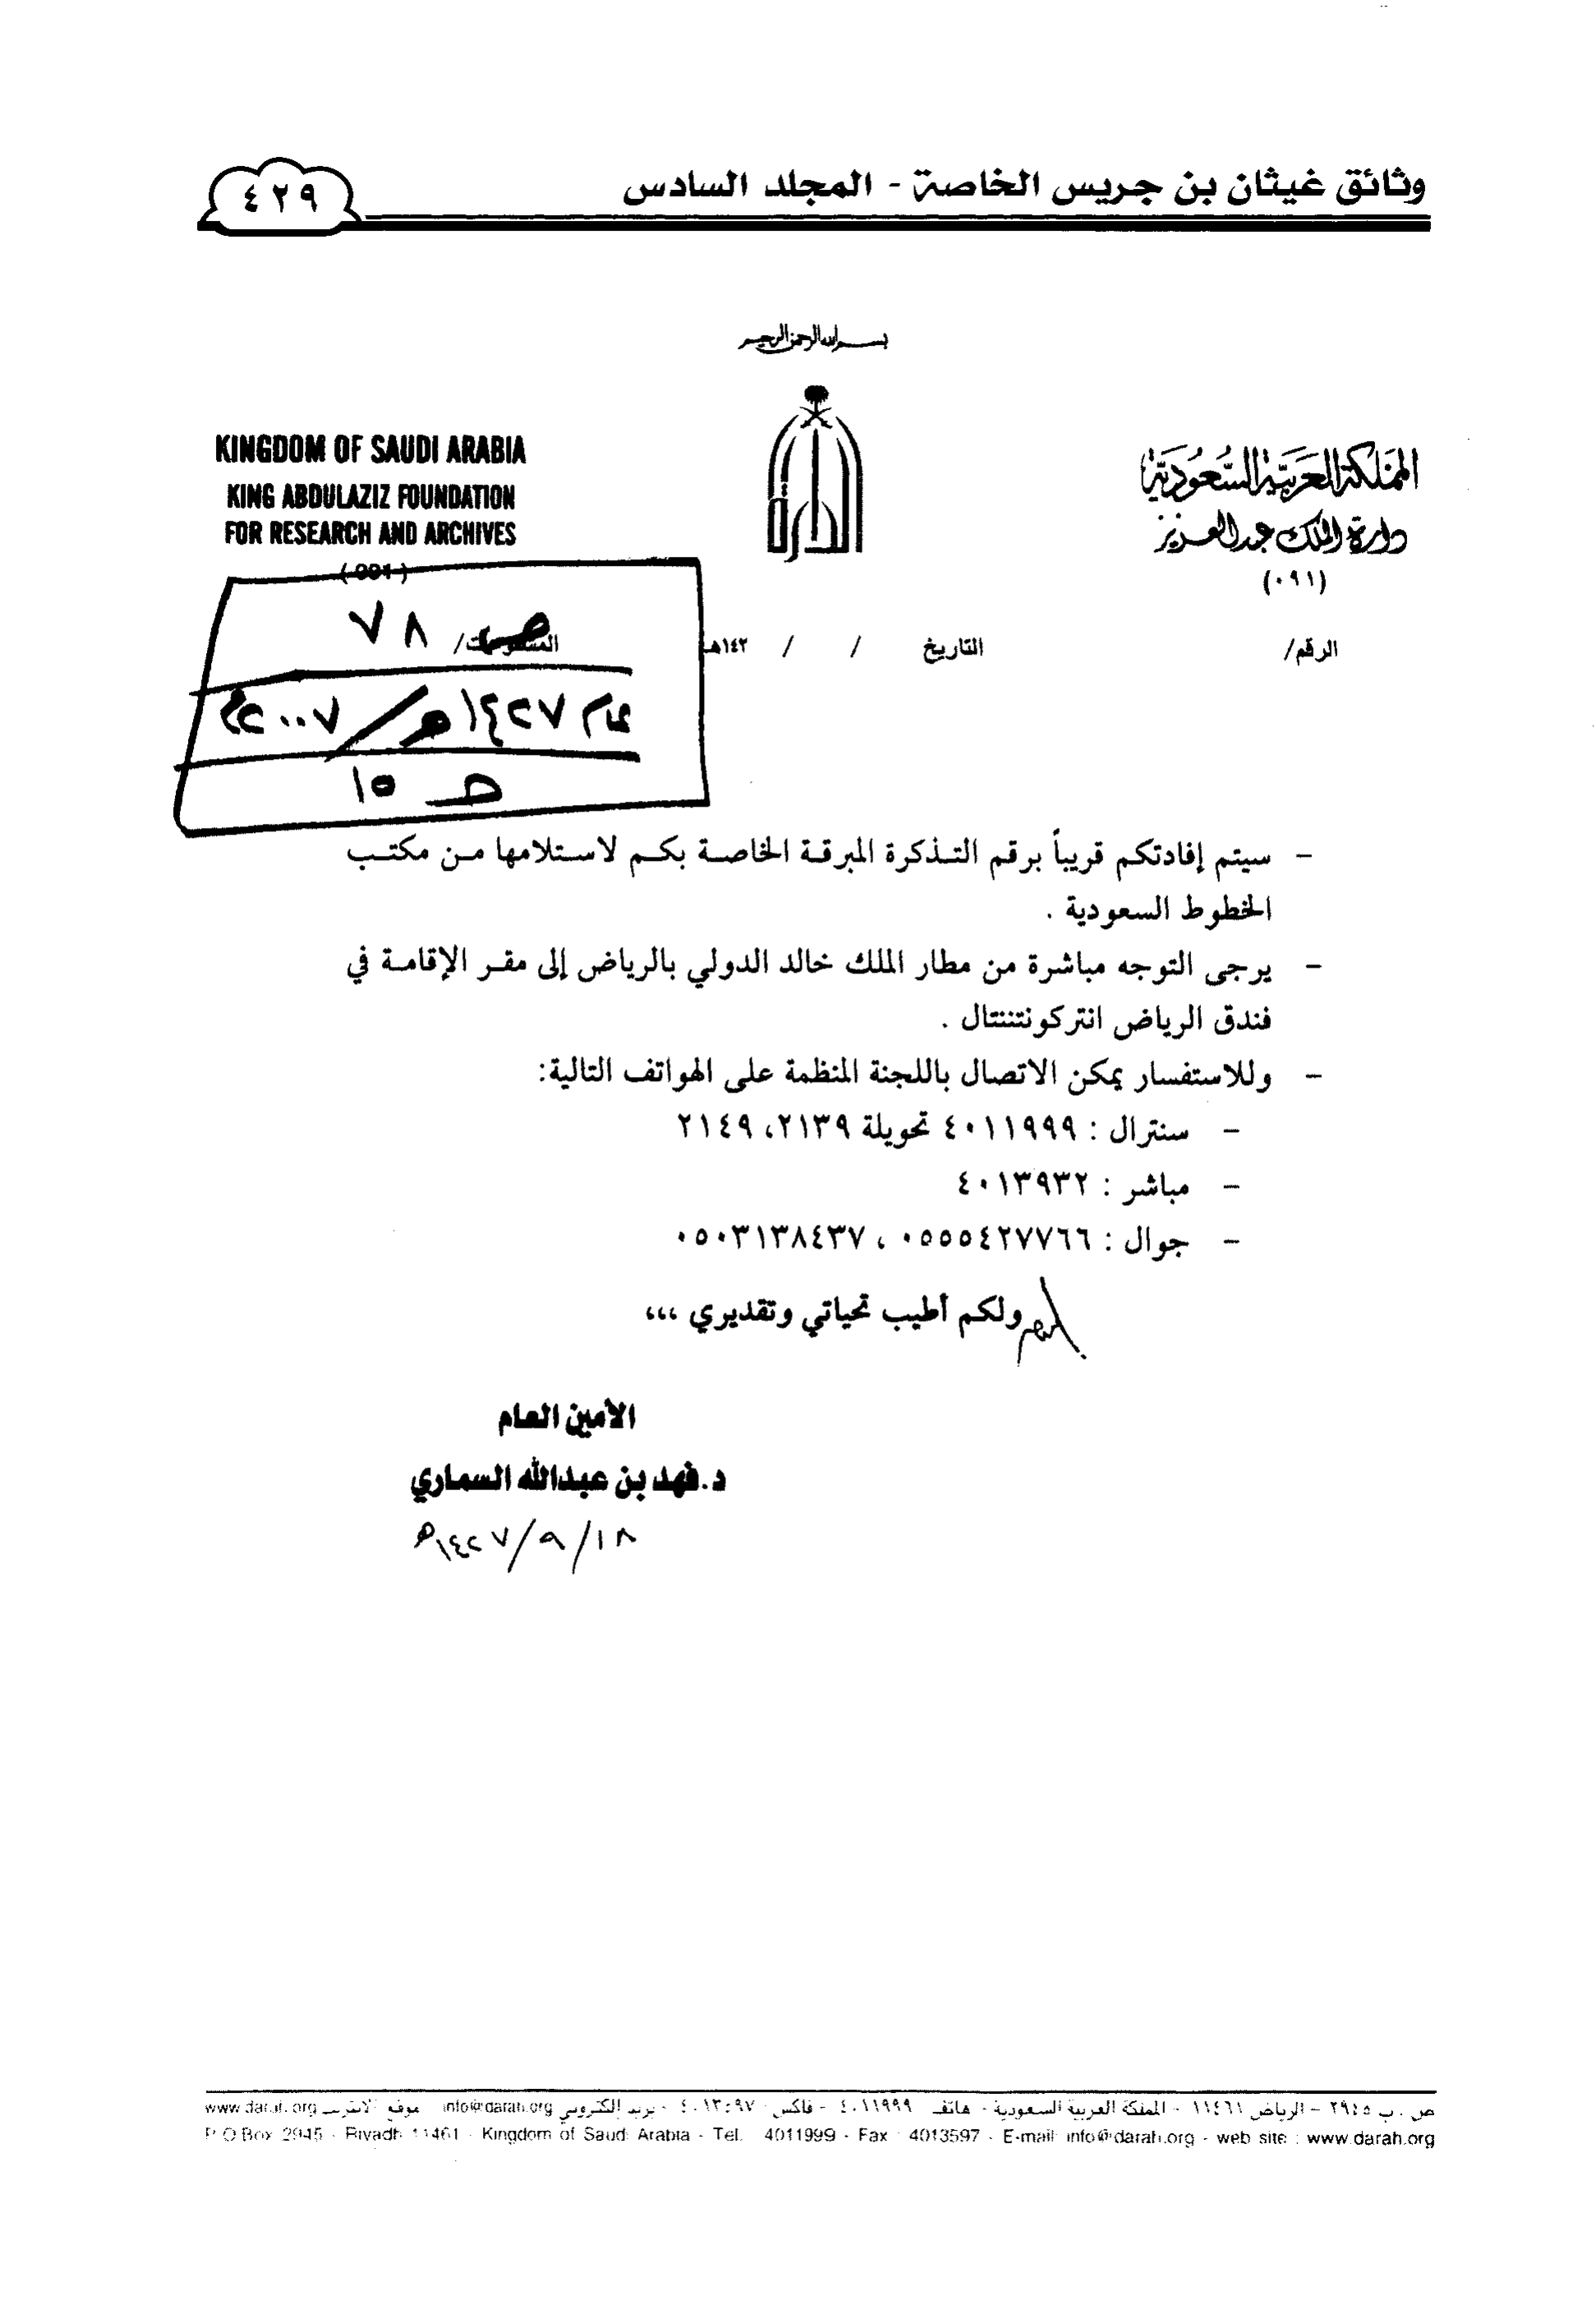 وثائق غيثان بن جريس الخاصة - المجلد السادس
٤٢٩
بسم الله الرحمن الرحيم
المملكة العربية السعودية
دارة الملك عبدالعزيز
(٠٩١)
KINGDOM OF SAUDI ARABIA
KING ABDULAZIZ FOUNDATION
FOR RESEARCH AND ARCHIVES
(091)
الرقم/
التاريخ / / ١٤٢هـ
ص ٧٨
عام ١٤٢٧هـ/٢٠٠٧م
١٥
- سيتم إفادتكم قريباً برقم التذكرة المبرقة الخاصة بكم لاستلامها من مكتب
الخطوط السعودية .
- يرجى التوجه مباشرة من مطار الملك خالد الدولي بالرياض إلى مقر الإقامة في
فندق الرياض انتركونتننتال .
- وللاستفسار يمكن الاتصال باللجنة المنظمة على الهواتف التالية:
- سنترال : ٤٠١١٩٩٩ تحويلة ٢١٣٩، ٢١٤٩
- مباشر : ٤٠١٣٩٣٢
- جوال : ٠٥٥٥٤٢٧٧٦٦ ، ٠٥٠٣١٣٨٤٣٧
ولكم أطيب تحياتي وتقديري ،،،
الأمين العام
د.فهد بن عبدالله السماري
١٨/٩/١٤٢٧هـ
ص . ب ٢٩٤٥ - الرياض ١١٤٦١ - المملكة العربية السعودية - هاتف ٤٠١١٩٩٩ - فاكس ٤٠١٣٥٩٧ - بريد إلكتروني info@darah.org موقع الانترنت www.darah.org
P.O.Box 2945 - Riyadh 11461 - Kingdom of Saudi Arabia - Tel. 4011999 - Fax : 4013597 - E-mail: info@darah.org - web site : www.darah.org